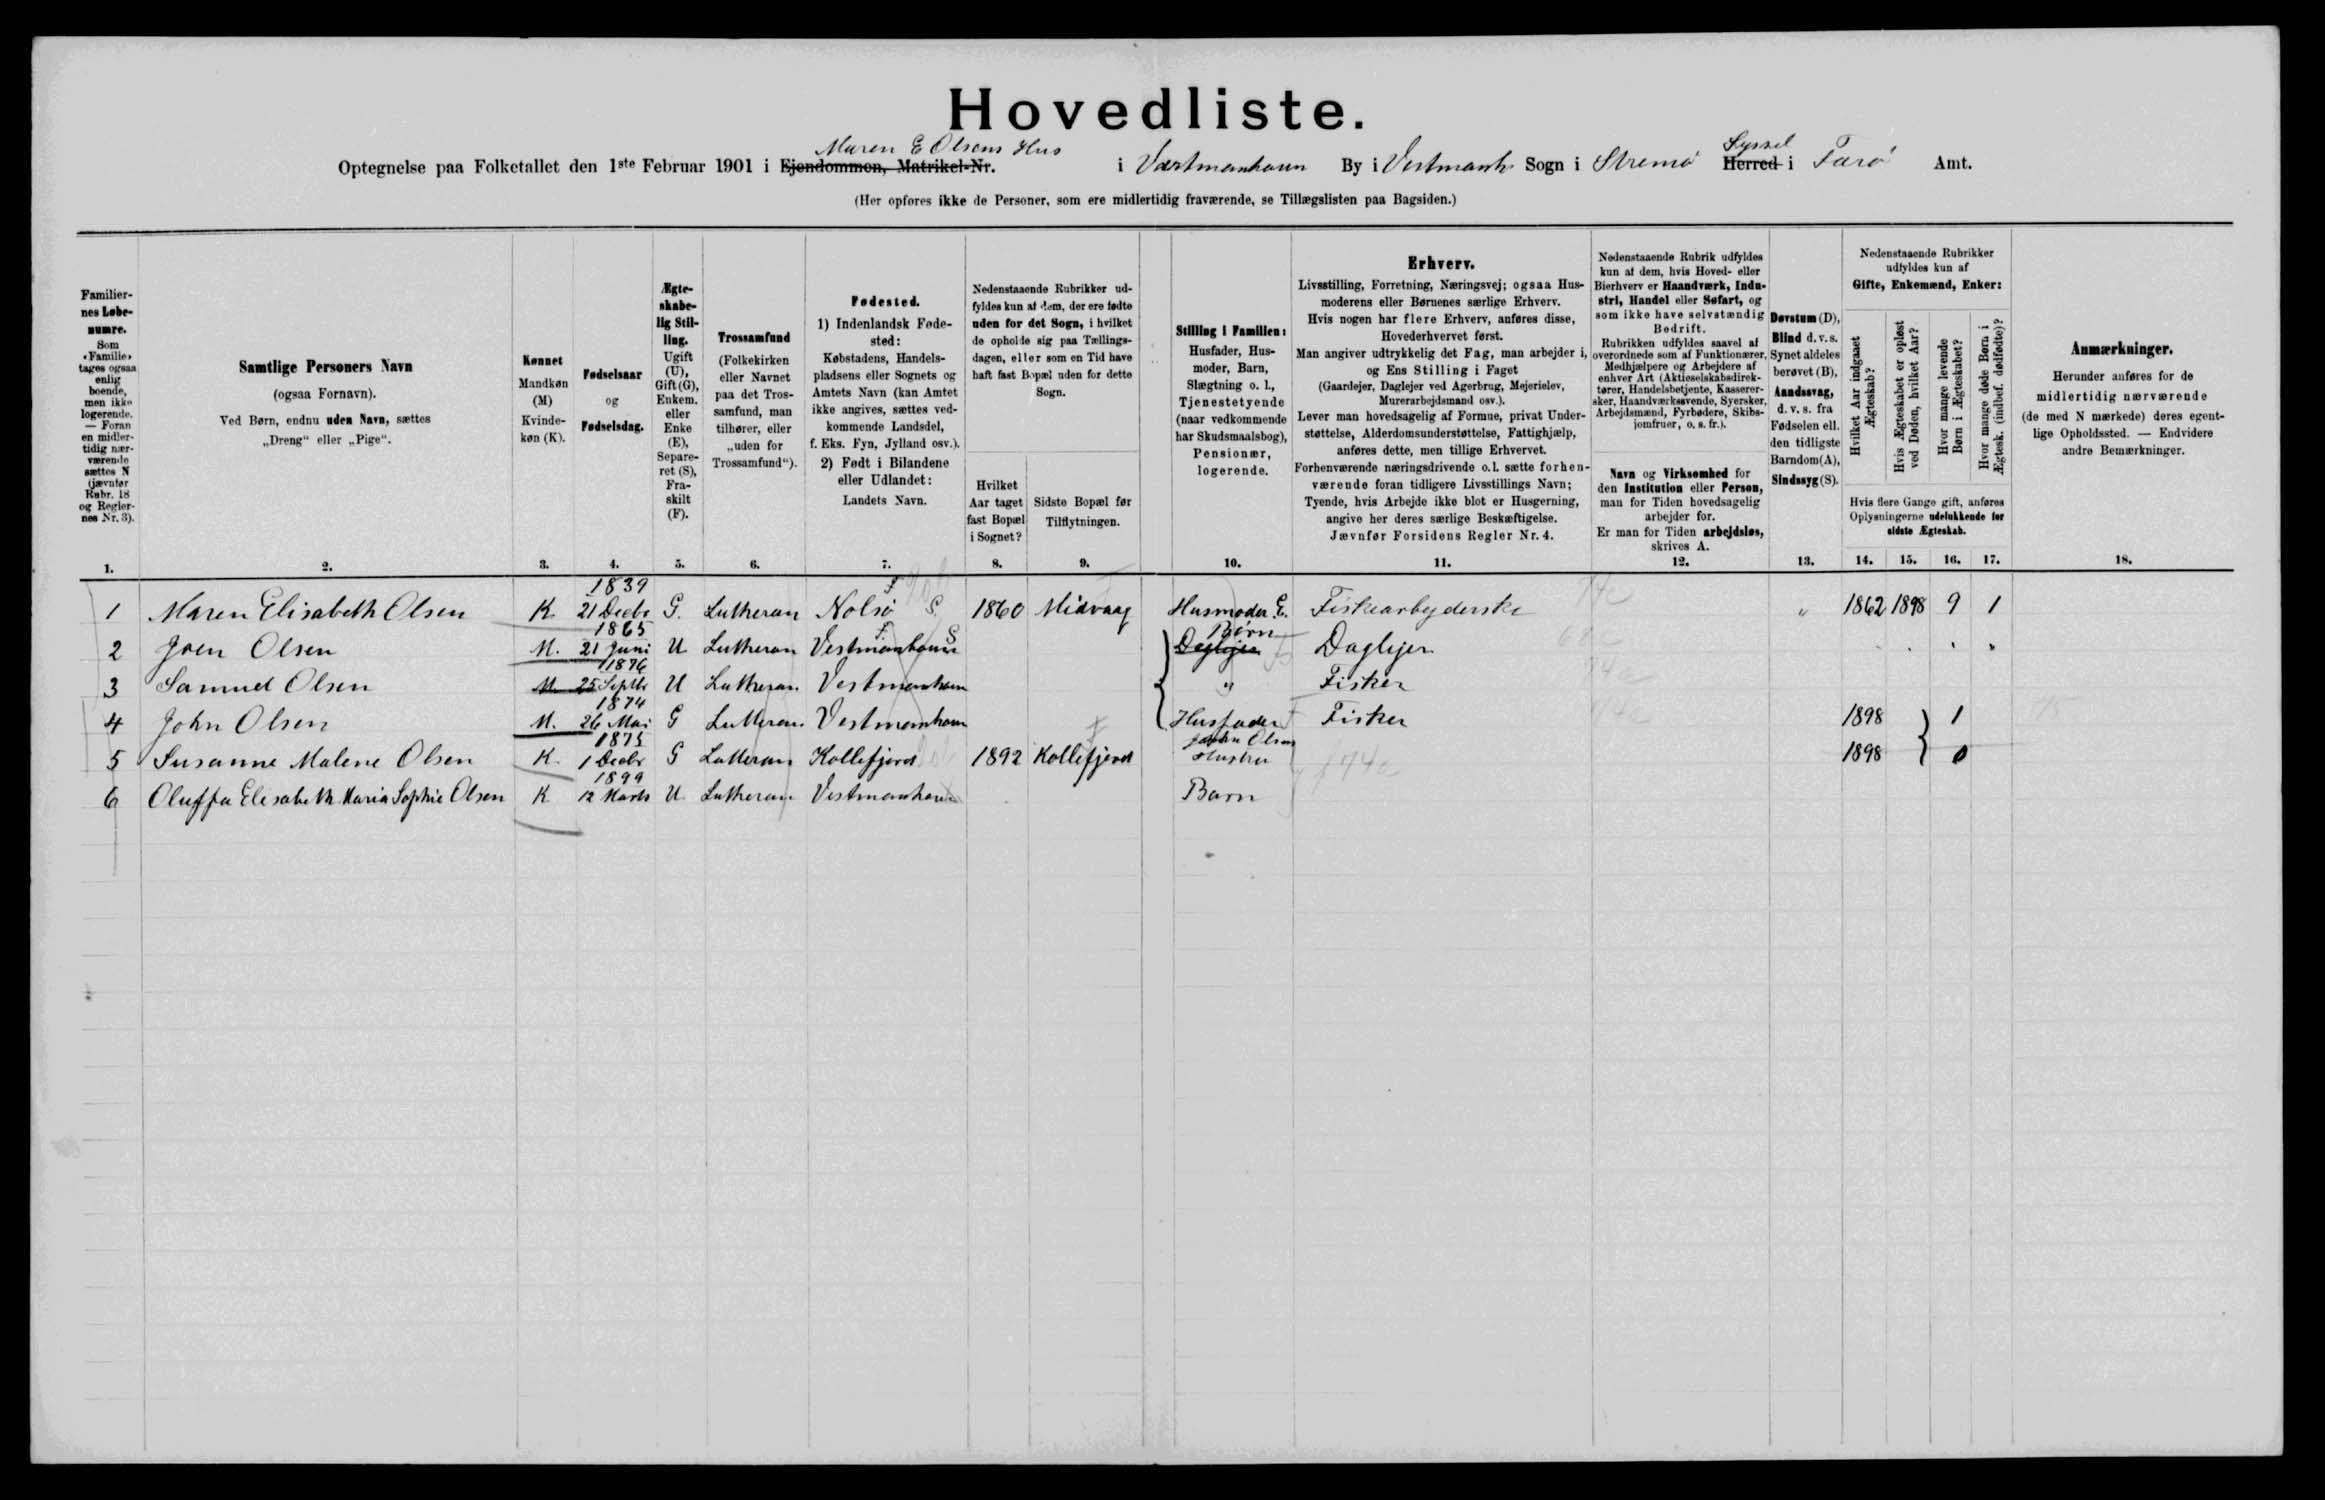 Hovedliste.
Maren E Olsens Hus
Syssel
Optegnelse paa Folketallet den 1ste Februar 1901 i Ejendommen, Matrikel-Nr. i Vestmanhavn By i Vestmanh. Sogn i Stremö Herred i Færö Amt.
(Her opføres ikke de Personer, som ere midlertidig fraværende, se Tillægslisten paa Bagsiden.)
Familiernes Løbenumre.
Som «Familie» tages ogsaa enlig boende, men ikke logerende. — Foran en midlertidig nærværende sættes N (jævnfør Rubr. 18 og Reglernes Nr. 3).
1.
Samtlige Personers Navn
(ogsaa Fornavn).
Ved Børn, endnu uden Navn, sættes
„Dreng“ eller „Pige“.
2.
Kønnet
Mandkøn (M)
Kvindekøn (K).
3.
Fødselsaar
og
Fødselsdag.
4.
Ægteskabelig Stilling.
Ugift (U), Gift (G), Enkem. eller Enke (E), Separeret (S), Fraskilt (F).
5.
Trossamfund
(Folkekirken eller Navnet paa det Trossamfund, man tilhører, eller „uden for Trossamfund“).
6.
Fødested.
1) Indenlandsk Fødested:
Købstadens, Handelspladsens eller Sognets og Amtets Navn (kan Amtet ikke angives, sættes vedkommende Landsdel, f. Eks. Fyn, Jylland osv.).
2) Født i Bilandene eller Udlandet:
Landets Navn.
7.
Nedenstaaende Rubrikker udfyldes kun af dem, der ere fødte uden for det Sogn, i hvilket de opholde sig paa Tællingsdagen, eller som en Tid have haft fast Bopæl uden for dette Sogn.
Hvilket Aar taget fast Bopæl i Sognet?
8.
Sidste Bopæl før Tilflytningen.
9.
Stilling i Familien:
Husfader, Husmoder, Barn, Slægtning o. l., Tjenestetyende (naar vedkommende har Skudsmaalsbog), Pensionær, logerende.
10.
Erhverv.
Livsstilling, Forretning, Næringsvej; ogsaa Husmoderens eller Børnenes særlige Erhverv.
Hvis nogen har flere Erhverv, anføres disse, Hovederhvervet først.
Man angiver udtrykkelig det Fag, man arbejder i, og Ens Stilling i Faget
(Gaardejer, Daglejer ved Agerbrug, Mejerielev, Murerarbejdsmand osv.).
Lever man hovedsagelig af Formue, privat Understøttelse, Alderdomsunderstøttelse, Fattighjælp, anføres dette, men tillige Erhvervet.
Forhenværende næringsdrivende o.l. sætte forhenværende foran tidligere Livsstillings Navn;
Tyende, hvis Arbejde ikke blot er Husgerning, angive her deres særlige Beskæftigelse.
Jævnfør Forsidens Regler Nr. 4.
11.
Nedenstaaende Rubrik udfyldes kun af dem, hvis Hoved- eller Bierhverv er Haandværk, Industri, Handel eller Søfart, og som ikke have selvstændig Bedrift.
Rubrikken udfyldes saavel af overordnede som af Funktionærer, Medhjælpere og Arbejdere af enhver Art (Aktieselskabsdirektører, Handelsbetjente, Kasserersker, Haandværkssvende, Syersker, Arbejdsmænd, Fyrbødere, Skibsjomfruer, o. s. fr.).
Navn og Virksomhed for den Institution eller Person, man for Tiden hovedsagelig arbejder for.
Er man for Tiden arbejdsløs, skrives A.
12.
Døvstum (D),
Blind d. v. s. Synet aldeles berøvet (B),
Aandssvag, d. v. s. fra Fødselen ell. den tidligste Barndom (A),
Sindssyg (S).
13.
Nedenstaaende Rubrikker udfyldes kun af
Gifte, Enkemænd, Enker:
Hvilket Aar indgaaet Ægteskab?
Hvis Ægteskabet er opløst ved Døden, hvilket Aar?
Hvor mange levende Børn i Ægteskabet?
Hvor mange døde Børn i Ægtesk. (indbef. dødfødte)?
Hvis flere Gange gift, anføres Oplysningerne udelukkende for sidste Ægteskab.
14. 15. 16. 17.
Anmærkninger.
Herunder anføres for de midlertidig nærværende (de med N mærkede) deres egentlige Opholdssted. — Endvidere andre Bemærkninger.
18.
1 Maren Elisabeth Olsen K 1839 21 Decbr G. Lutheran Nolsö 1860 Midvaag Husmoder E. Fiskearbejderske " 1862 1898 9 1
2 Joen Olsen M. 1865 21 Juni U Lutheran Vestmanhavn Daglejer Børn Daglejer
3 Samuel Olsen M. 1876 25 Septbr U Lutheran Vestmanhavn " Fisker
4 John Olsen M. 1874 26 Mai G Lutheran Vestmanhavn Husfader Fisker 1898 1
5 Susanne Malene Olsen K. 1875 1 Decbr G Lutheran Kollefjord 1892 Kollefjord John Olsens Hustru 1898 0
6 Oluffa Elisabeth Maria Sophie Olsen K 1899 12 Marts U Lutheran Vestmanhavn Barn